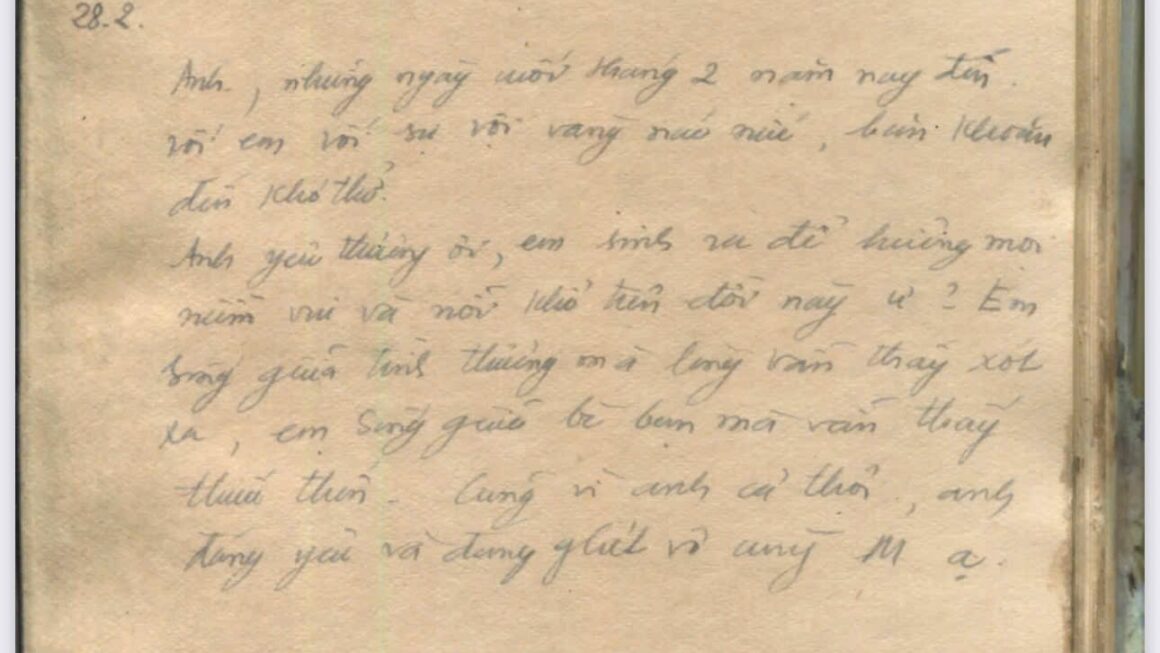 28.2.
Anh, những ngày cuối tháng 2 năm nay đến
với em với sự vội vàng náo nức, băn khoăn
đến khó thở.
Anh yêu thương ơi, em sinh ra để hưởng mọi
niềm vui và nỗi khổ trên đời này ư? Em
sống giữa tình thương mà lòng vẫn thấy xót
xa, em sống giữa bè bạn mà vẫn thấy
thiếu thốn. Cũng vì anh cả thôi, anh
đáng yêu và đáng ghét vô cùng M ạ.